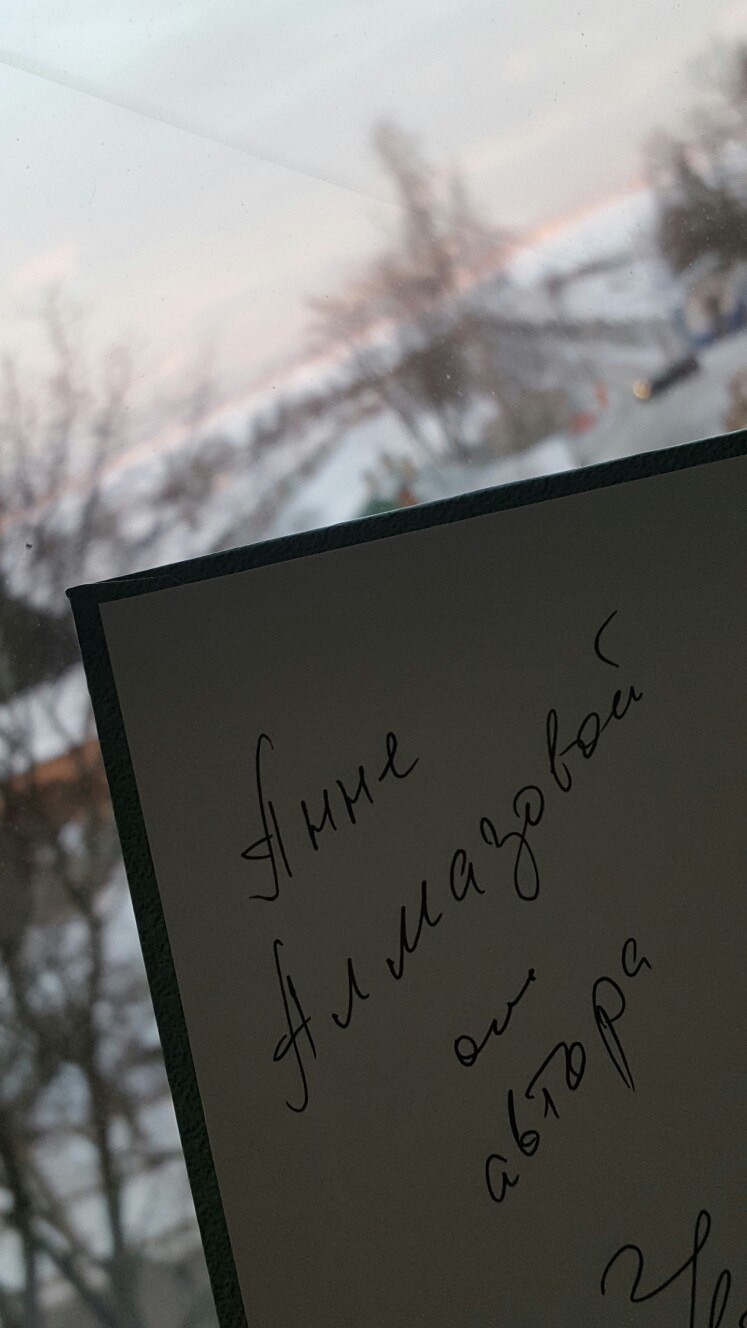 Анне
Алмазовой
от
автора